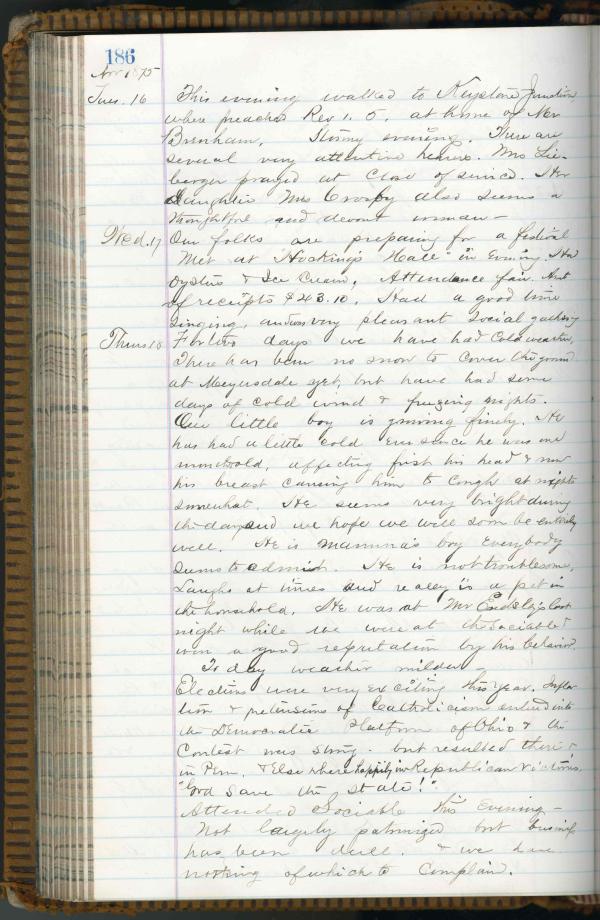 186
Nov 1875
Tues. 16 This evening walked to Keystone Junction
where preached Rev 1. 5. at home of
Stormy evening. There are
several very attentive hearers. Mrs Lie-
berger prayed at close of service. Her
daughter Mrs Crosby also seems a
thoughtful and devout woman -
Wed. 17 Our folks are preparing for a festival
Met at Hocking's Hall in Evening. Had
oysters & Ice Cream. Attendance fair. Net
of receipts $43.10. Had a good time
singing, and very pleasant social gathering
Thurs. 18 For two days we have had Cold weather,
There has been no snow to cover the ground
at Meyersdale yet, but have had some
days of cold wind & freezing nights.
Our little boy is growing finely. He
has had a little cold ever since he was one
month old, affecting first his head & now
his breast causing him to cough at nights
somewhat. He seems very bright during
the day and we hope we will soon be entirely
well. He is Mamma's boy Everybody
seems to admit. He is not troublesome,
Laughs at times and really is a pet in
the household. He was at Mr Endsley's last
night while we were at the Sociable &
won a good reputation by his behavior.
To day weather milder
Elections were very exciting this year. Infla-
tion & pretensions of Catholicism entered into
the Democratic Platform of Ohio & the
Contest was strong - but resulted there &
in Penn. & Else where happily in Republican victories.
"God save the State!"
Attended Sociable this Evening -
Not largely patronized but business
has been dull. & we have
nothing of which to Complain.